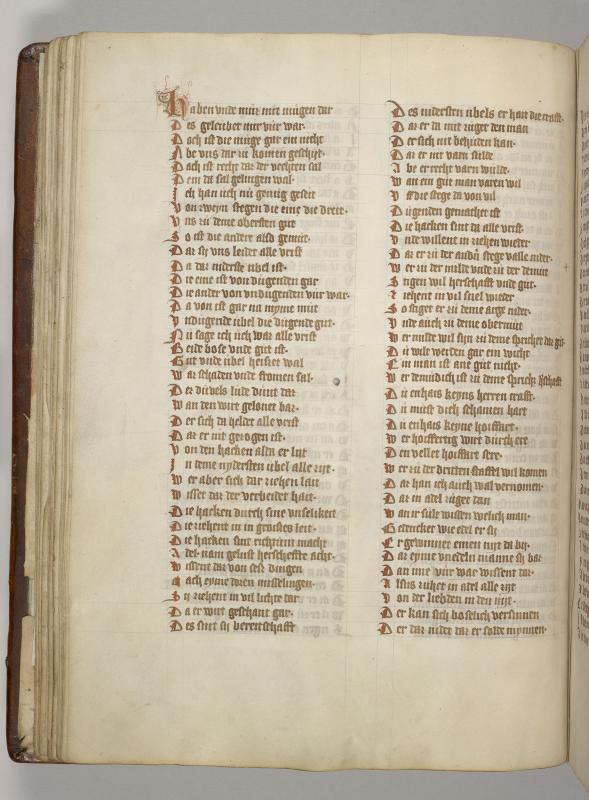 haben vnde mir mit mugen dar
Des geleuber mir vur war
Doch ist die muge gar ein nicht
Abe vns dar zu komen geschiet
Dach ist recht daz der vechten sal
Dem da sal gelingen wal
Ich han uch nu genug geseit
Von zweyn stegen die eine die dreit
Vns zu deme obersten gut
So ist die andere also gemut
Daz sy vns leidet alle vrist
Da daz niderste ubel ist
Die eine ist von dugenden gar
Die ander von vndugenden vur war
Da von ist gar na myme mut
Vndugende ubel die dugende gut
Nu sage ich uch war alle vrist
Beide bose vnde gut ist
Gut vnde ubel heiset wal
War schaden vnde fromen sal
Der duvels lude dunt daz
Wan den wirt gelonet baz
Der sich da heldet alle vrist
Daz er nit gezogen ist
Von den hacken aldn er lut
In deme nydersten ubel alle zyt
Wer aber sich dar ziehen lait
Wisset daz der verbeidet hait
Die hacken durch sine vnselikeit
Die ziehent in in groisses leit
Die hacken sint richtum macht
Adel nam gelust herscheffte acht
Wissent daz von ses dingen
Mach eyme doren misselingen
Sy ziehent in vil lichte dar
Da er wirt geschant gar
Des sint sy bereitschafft
Des nidersten ubels er hait die crafft
Daz er da mit zuget den man
Der sich nit behuden kan
Daz er nit varn stilde
Abe er recht varn wulde
Wan ein gut man varen wil
Vff die stege da von vil
Dugenden gemachet ist
Die hacken sint da alle vrist
Vnde willent in ziehen wieder
Daz er zu der andern stege valle nider
Wer zu der milde vnde zu der demut
Stigen wil herschafft vnde gut
Ziehent in vil sniel wieder
So stiget er zu deme arge nider
Vnde auch zu deme obermut
Wer milde wil syn zu deme sprichet daz gut
Du wilt werden gar ein wicht
Ein man ist ane gut nicht
Wer demudich ist zu deme sprichet herschafft
Du enhais keyns herren crafft
Du must dich schamen hart
Du enhais keyne hoiffart
Wer hoiffertig wirt durch ere
Den vellet hoiffart sere
Wer zu der dritten staffel wil komen
Daz han ich auch wal vernomen
Daz in adel zuget dan
Wan er sule wisden welich man
Gedencker wie edel er sy
Er gewinnet einen nyt da by
Daz eyme vnedeln manne sy baz
Dan ime vur war wissent daz
Alsus zuhet in adel alle zyt
Von der liebden in den nyt
Der kan sich boselich versinnen
Der daz nidet daz er solde mynnen